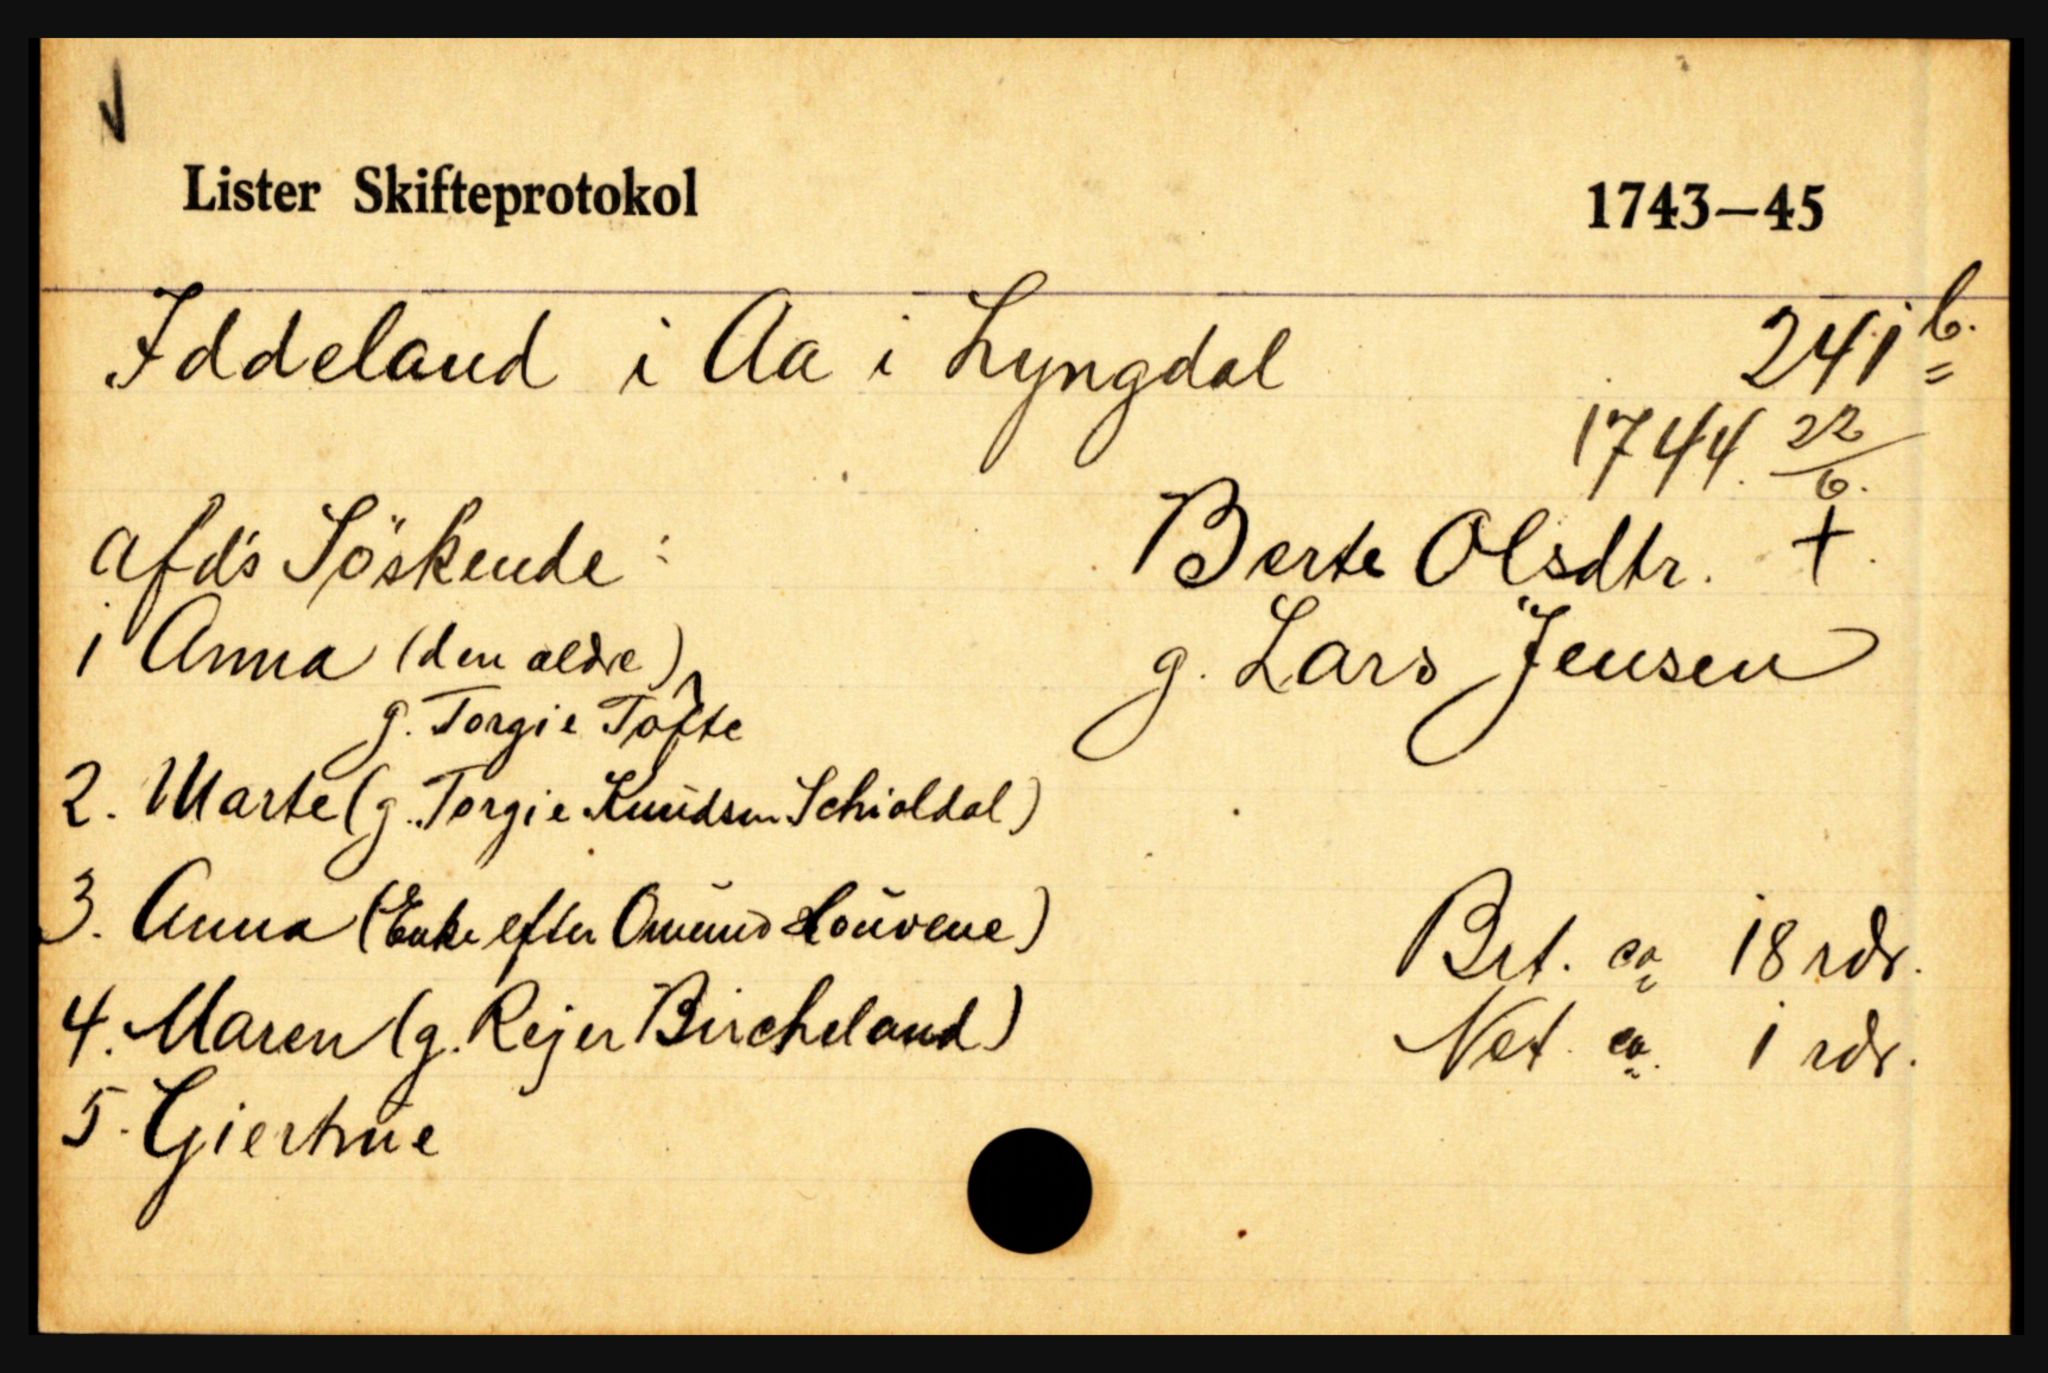 Lister Skifteprotokol 1743–45
Iddeland i Aa i Lyngdal 241 b.
1744. 22/6.
afd's Söskende: Berte Olsdtr. †.
1 Anna (den ældre) g. Lars Jensen
g. Torgie Tofte
2. Marte (g. Torgie Knudsen Schioldal)
3. Anna (Enke efter Omund Houvene)
Brt. ca 18 rdr.
4. Maren (g. Rejer Bircheland)
Net. ca. 1 rdr.
5. Giertrue